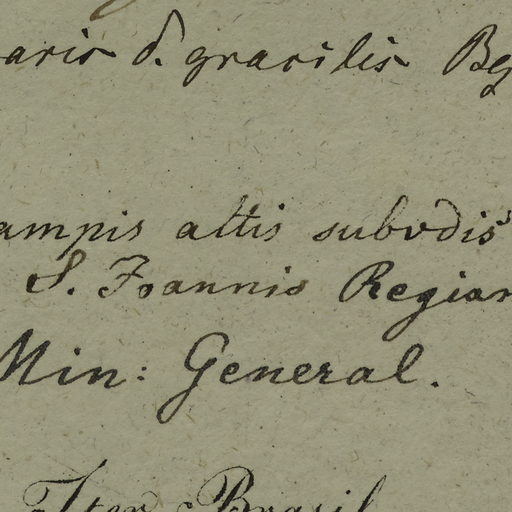 aris δ. gracilis Bg
ampis altis subvdis
S. Joannis Regian
Min: General.
Iter Brasil